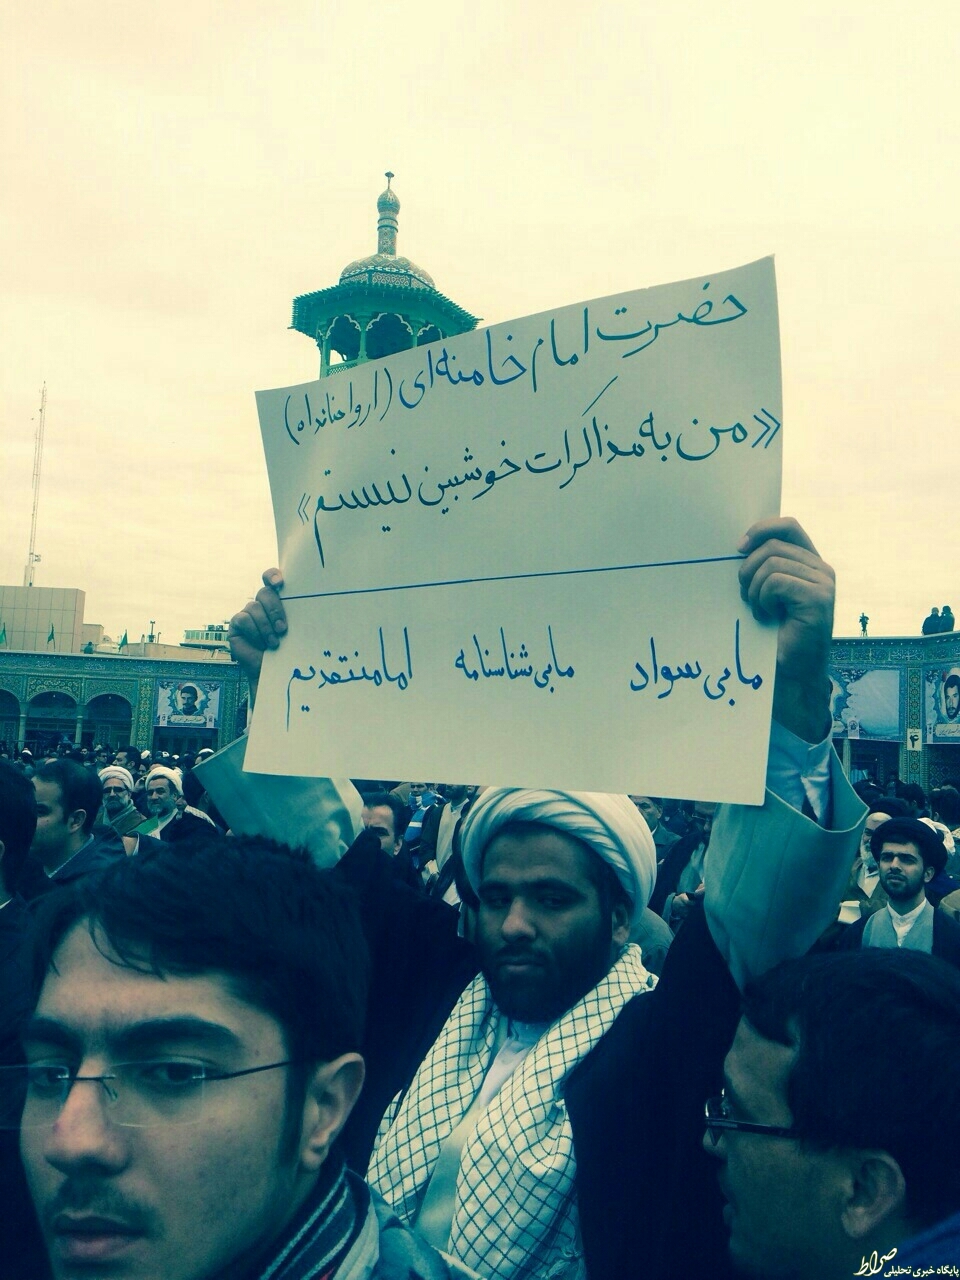 حضرت امام خامنه‌ای (ارواحنافداه)
«من به مذاکرات خوشبین نیستم»
مابی سواد مابی‌شناسنامه امامنتقدیم
۴
صراط
پایگاه خبری تحلیلی